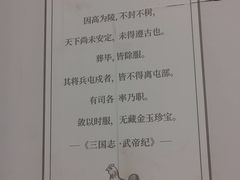 因高为陵，不封不树，
天下尚未安定，未得遵古也。
葬毕，皆除服。
其将兵屯戍者，皆不得离屯部。
有司各 率乃职。
敛以时服，无藏金玉珍宝。
——《三国志·武帝纪》